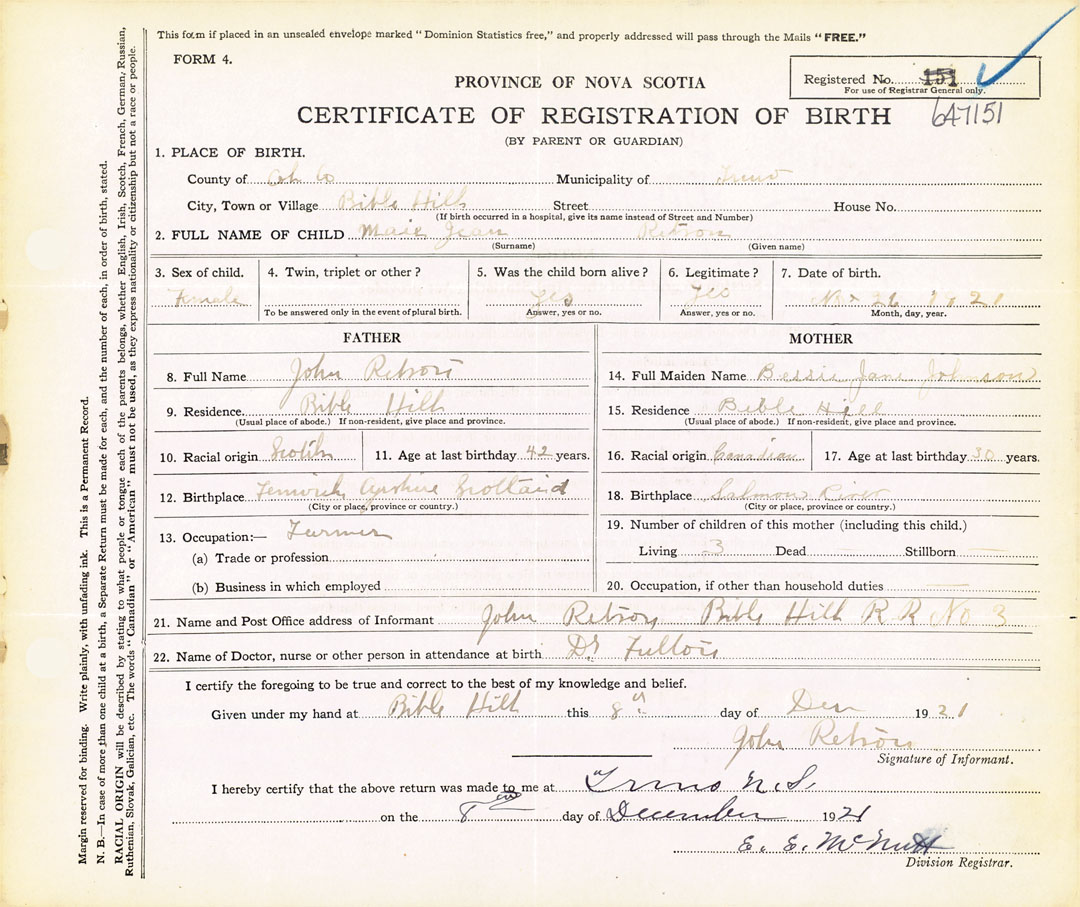 This form if placed in an unsealed envelope marked "Dominion Statistics free," and properly addressed will pass through the Mails "FREE."
FORM 4.
Registered No. 151
For use of Registrar General only.
647151
PROVINCE OF NOVA SCOTIA
CERTIFICATE OF REGISTRATION OF BIRTH
(BY PARENT OR GUARDIAN)
1. PLACE OF BIRTH.
County of Col Co Municipality of Truro
City, Town or Village Bible Hill Street House No.
(If birth occurred in a hospital, give its name instead of Street and Number)
2. FULL NAME OF CHILD Jean Retson
(Surname) (Given name)
3. Sex of child. 4. Twin, triplet or other? 5. Was the child born alive? 6. Legitimate? 7. Date of birth.
Female yes yes 26 1921
To be answered only in the event of plural birth. Answer, yes or no. Answer, yes or no. Month, day, year.
FATHER
8. Full Name John Retson
9. Residence. Bible Hill
(Usual place of abode.) If non-resident, give place and province.
10. Racial origin Scotch 11. Age at last birthday 42 years.
12. Birthplace Fenwick Ayrshire Scotland
(City or place, province or country.)
13. Occupation:— Farmer
(a) Trade or profession
(b) Business in which employed
MOTHER
14. Full Maiden Name Bessie Jane Johnson
15. Residence Bible Hill
(Usual place of abode.) If non-resident, give place and province.
16. Racial origin Canadian 17. Age at last birthday 30 years.
18. Birthplace Salmon River
(City or place, province or country.)
19. Number of children of this mother (including this child.)
Living 3 Dead Stillborn —
20. Occupation, if other than household duties —
21. Name and Post Office address of Informant John Retson Bible Hill R R No 3
22. Name of Doctor, nurse or other person in attendance at birth Dr Fulton
I certify the foregoing to be true and correct to the best of my knowledge and belief.
Given under my hand at Bible Hill this 8 day of Dec 1921
John Retson
Signature of Informant.
I hereby certify that the above return was made to me at Truro N.S.
on the 8 day of December 1921
E. E. McNutt
Division Registrar.
Margin reserved for binding. Write plainly, with unfading ink. This is a Permanent Record.
N. B.—In case of more than one child at a birth, a Separate Return must be made for each, and the number of each, in order of birth, stated.
RACIAL ORIGIN will be described by stating to what people or tongue each of the parents belongs, whether English, Irish, Scotch, French, German, Russian,
Ruthenian, Slovak, Galician, etc. The words "Canadian" or "American" must not be used, as they express nationality or citizenship but not a race or people.